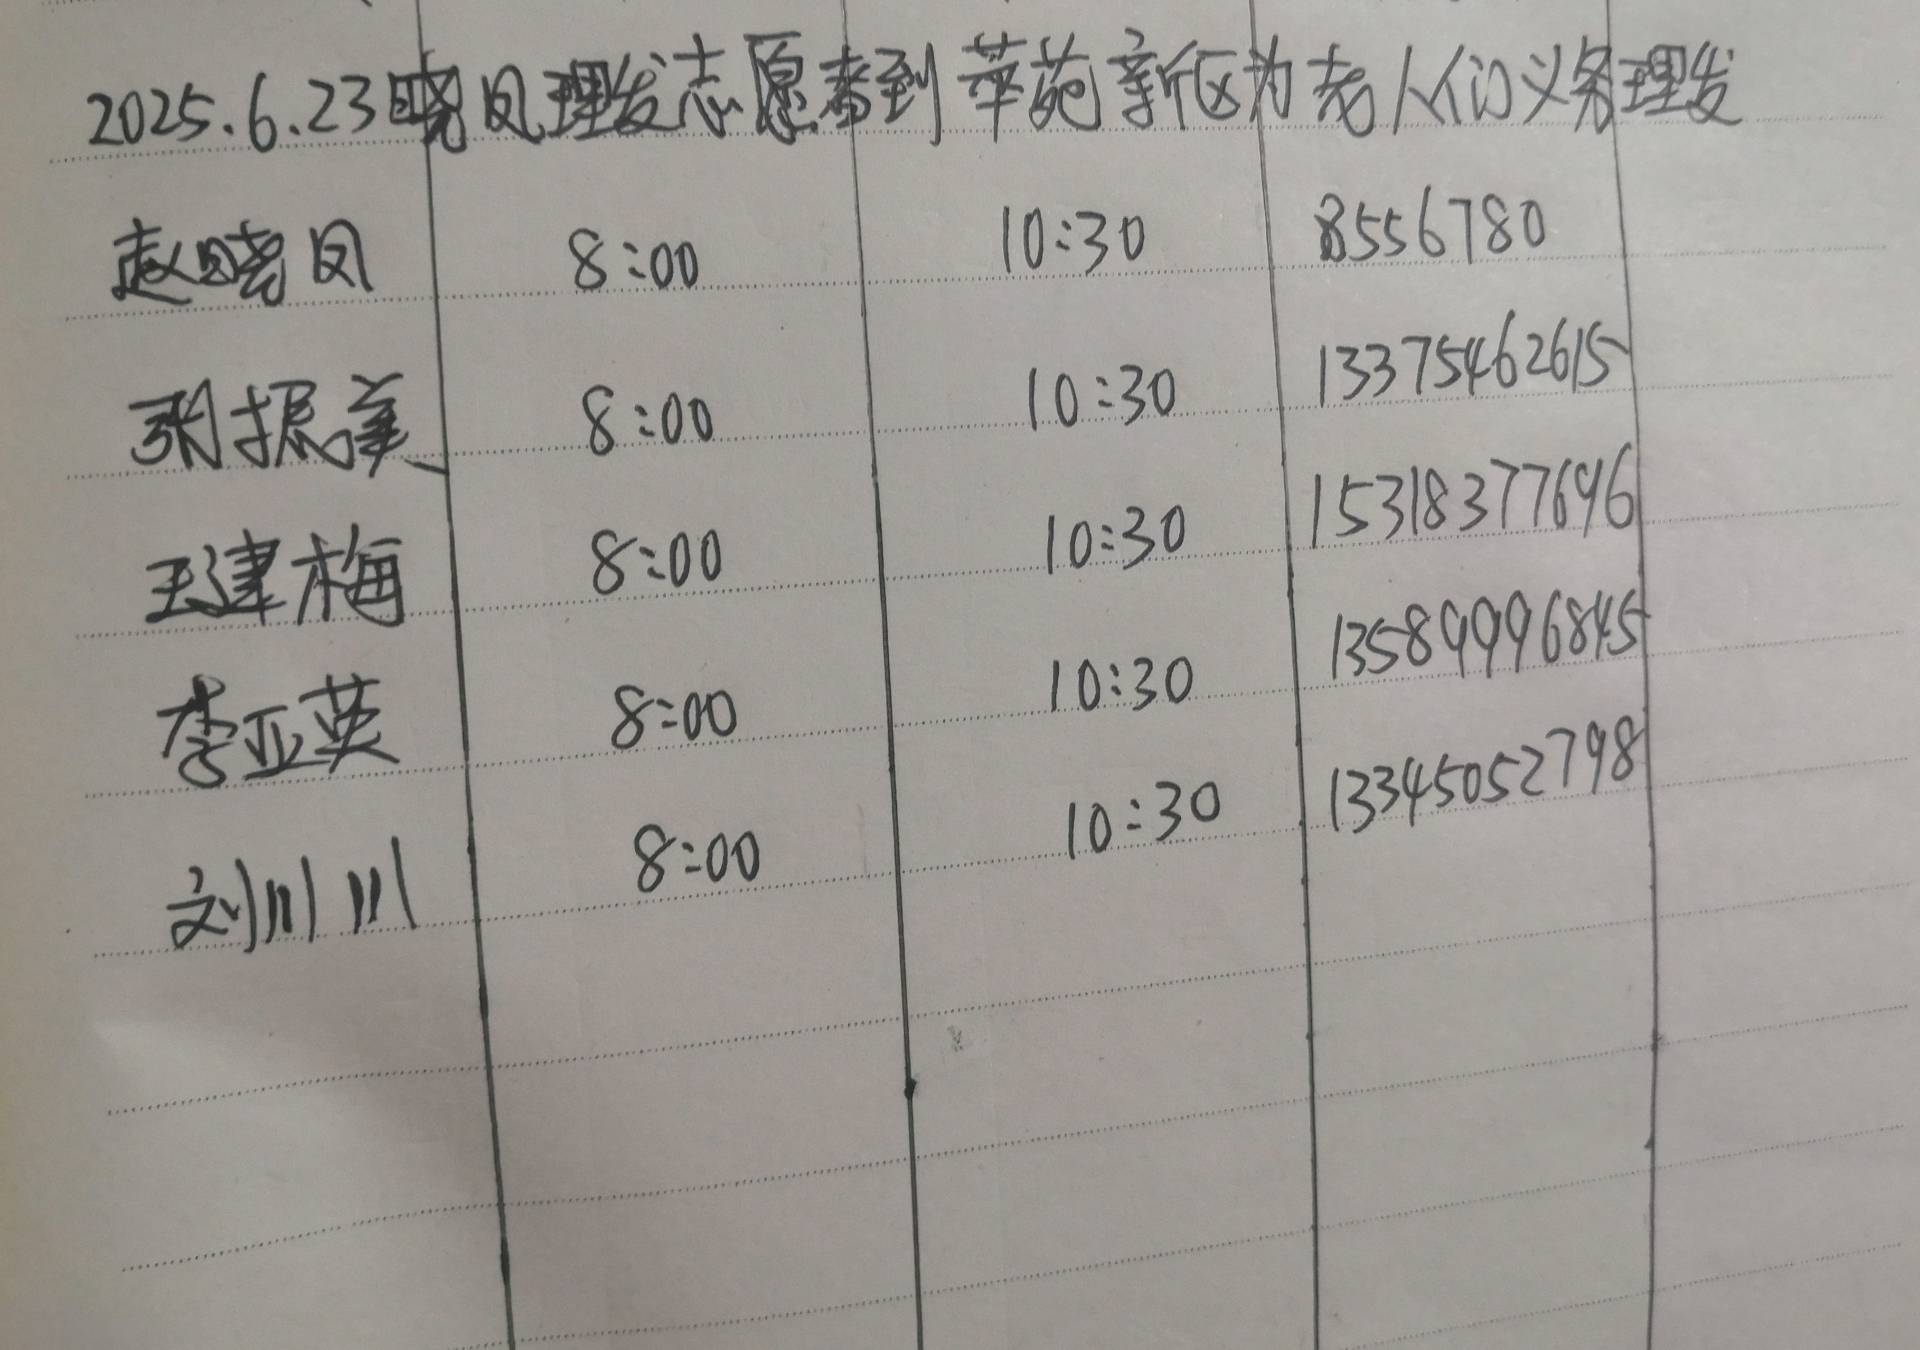 2025.6.23晓凤理发志愿者到莘苑新区为老人们义务理发
赵晓凤 8:00 10:30 8556780
张振美 8:00 10:30 13375462615
王建梅 8:00 10:30 15318377696
李亚英 8:00 10:30 13589996845
刘川川 8:00 10:30 13345052798